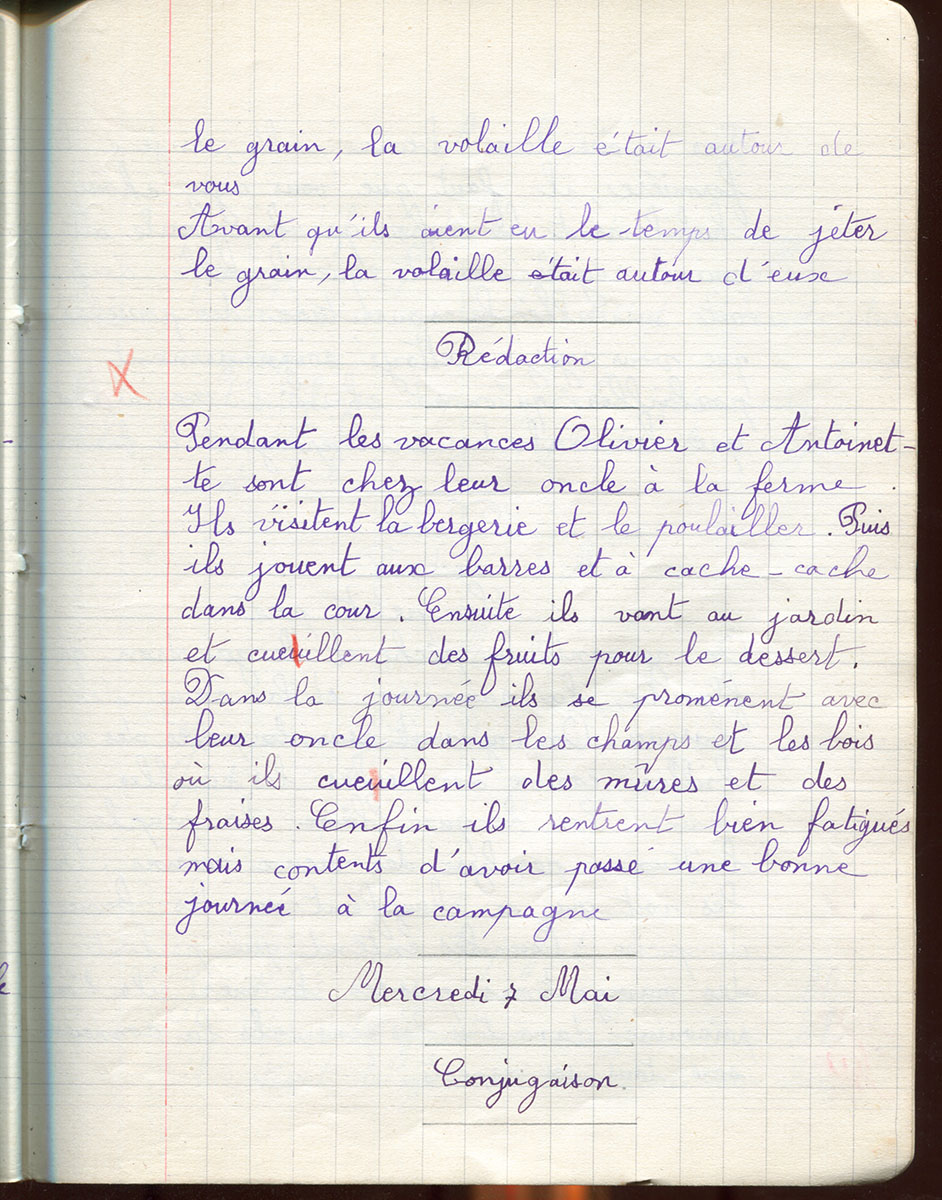 le grain, la volaille était autour de
vous
Avant qu'ils aient eu le temps de jéter
le grain, la volaille était autour d'eux
Rédaction
Pendant les vacances Olivier et Antoinet-
te sont chez leur oncle à la ferme.
Ils visitent la bergerie et le poulailler. Puis
ils jouent aux barres et à cache-cache
dans la cour. Ensuite ils vont au jardin
et cueuillent des fruits pour le dessert.
Dans la journée ils se promènent avec
leur oncle dans les champs et les bois
où ils cueuillent des mûres et des
fraises. Enfin ils rentrent bien fatigués
mais contents d'avoir passé une bonne
journée à la campagne
Mercredi 7 Mai
Conjugaison.